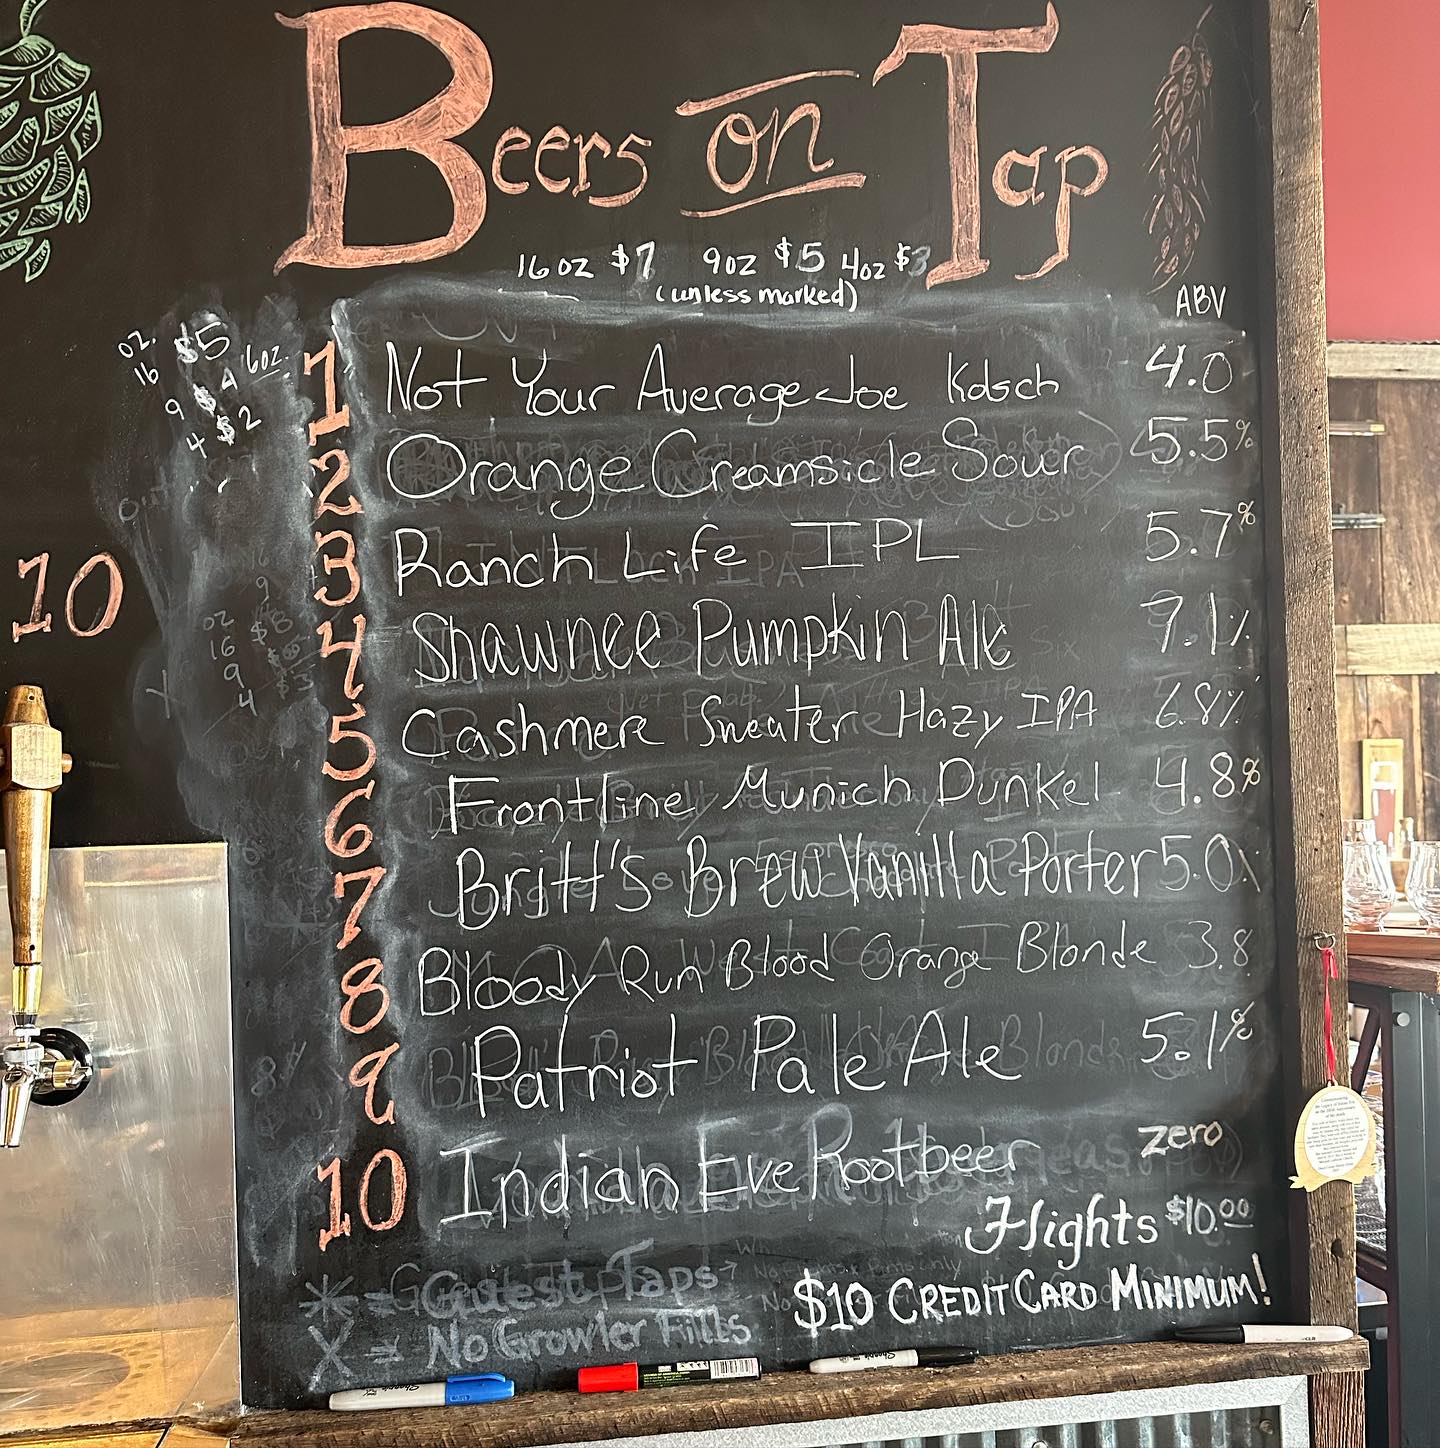 Beers on Tap
16 oz $7 9oz $5 4oz $3
(unless marked)
ABV
oz.
16 $5
9 $4 16oz.
4 $2
1 Not Your Average Joe Kolsch 4.0
2 Orange Creamsicle Sour 5.5%
3 Ranch Life IPL 5.7%
10
4 Shawnee Pumpkin Ale 7.1%
oz
16 $8
9
4
X
5 Cashmere Sweater Hazy IPA 6.8%
6 Frontline Munich Dunkel 4.8%
7 Britt's Brew Vanilla Porter 5.0%
8 Bloody Run Blood Orange Blonde 3.8
9 Patriot Pale Ale 5.1%
10 Indian Eve Rootbeer zero
Flights $10.00
* = Guest Taps
$10 CREDIT CARD MINIMUM!
X = No Growler Fills
Sharpie
Sharpie